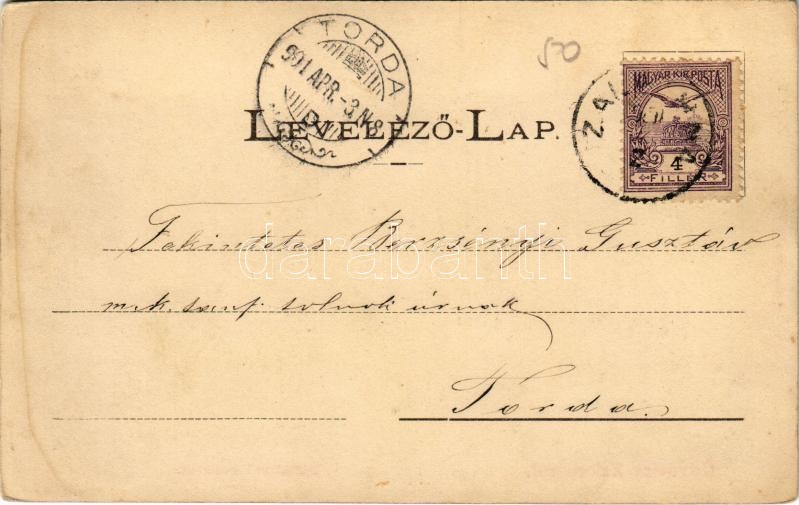 TORDA
901 APR. -3 N. 8
50
MAGYAR KIR. POSTA
4
FILLÉR
LEVELEZŐ-LAP.
Tekintetes Berzsényi Gusztáv
m. k. szolnok úrnak
Torda.
darabanth